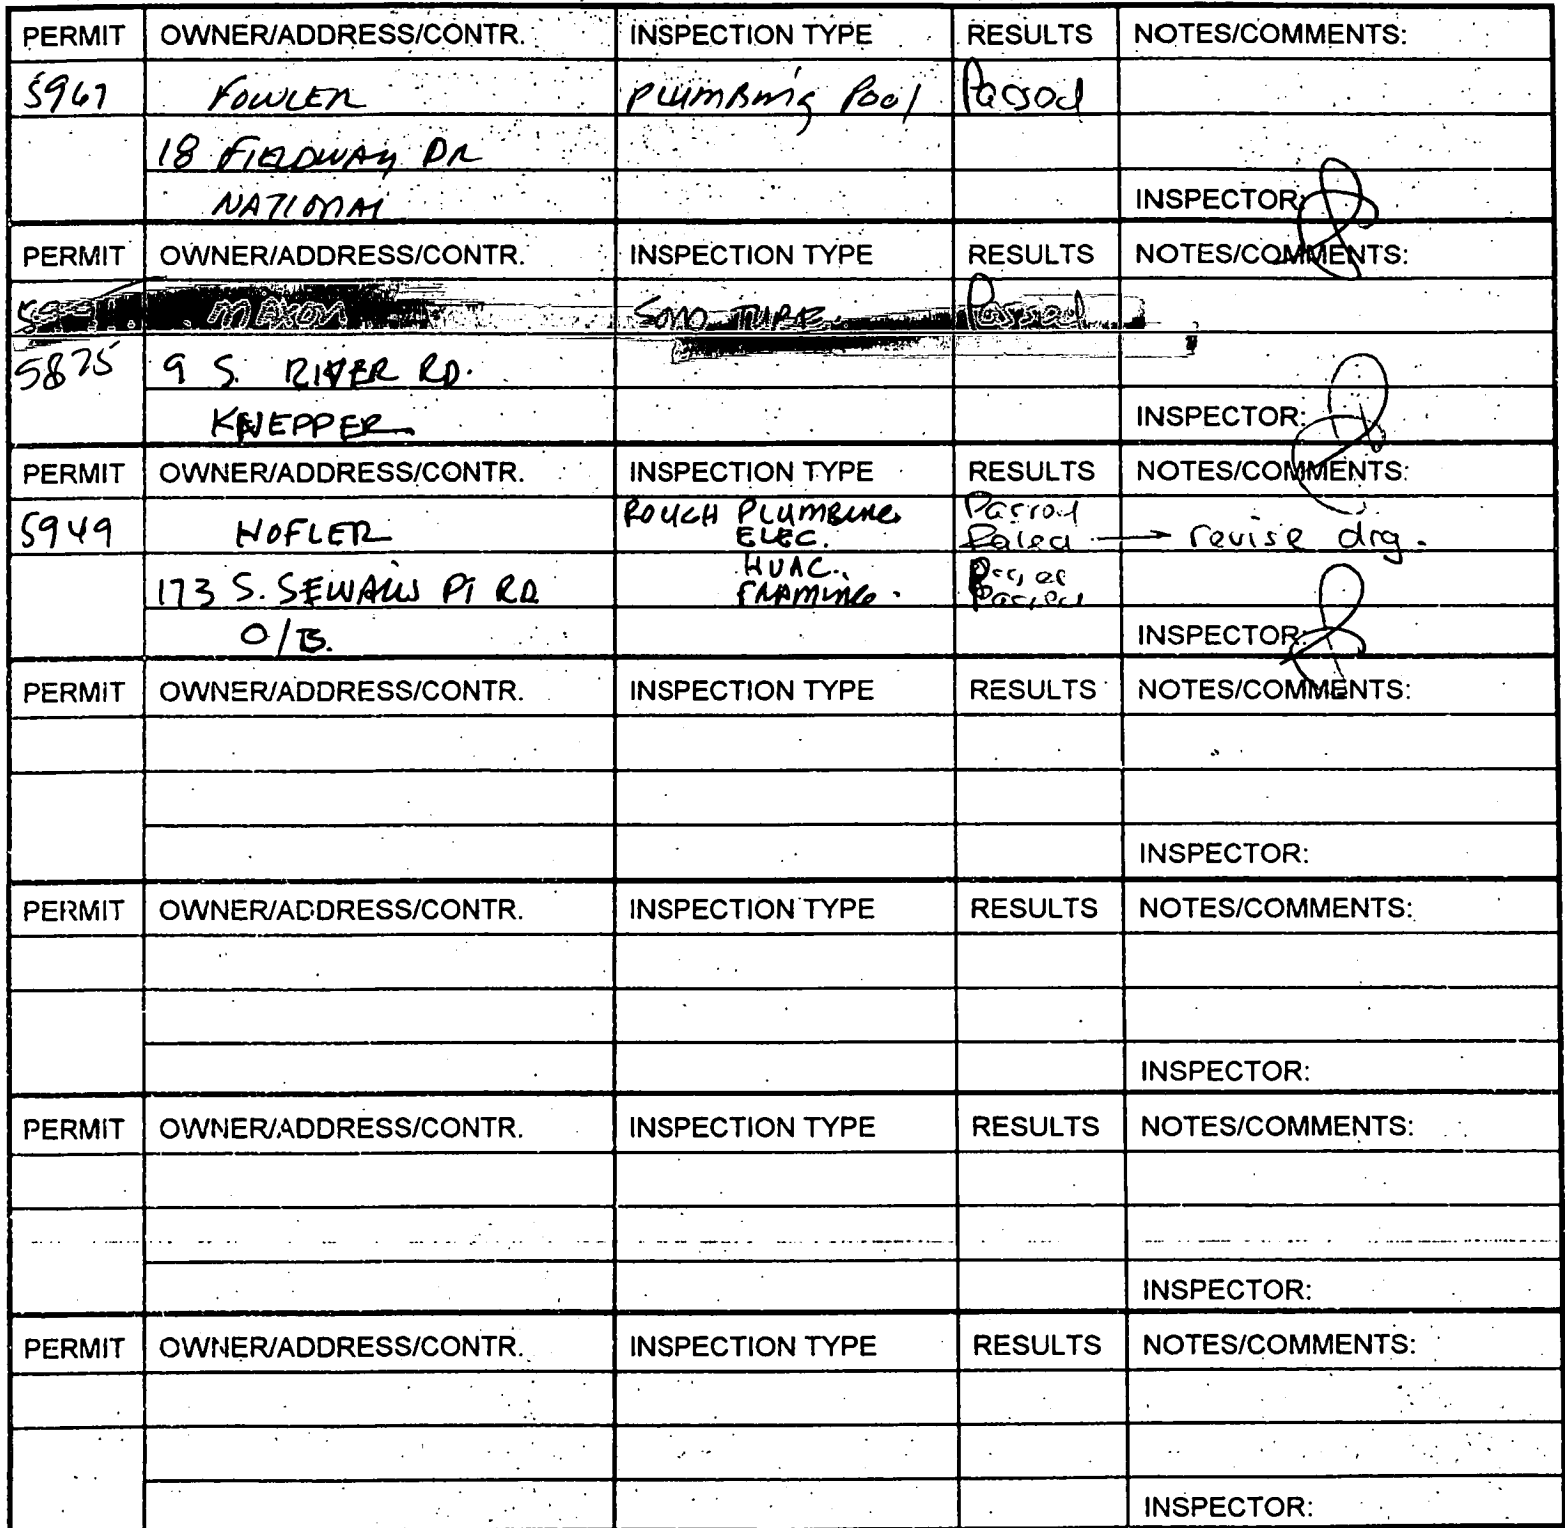 PERMIT OWNER/ADDRESS/CONTR. INSPECTION TYPE RESULTS NOTES/COMMENTS:
5967 FOWLER PLUMBING Pool Passed
18 FIELDWAY DR
NATIONAL INSPECTOR:
PERMIT OWNER/ADDRESS/CONTR. INSPECTION TYPE RESULTS NOTES/COMMENTS:
MAXON SONO TUBE Passed
5875 9 S. RIVER RD.
KNEPPER INSPECTOR:
PERMIT OWNER/ADDRESS/CONTR. INSPECTION TYPE RESULTS NOTES/COMMENTS:
5949 HOFLER ROUGH PLUMBING Passed
ELEC. Failed → revise drg.
HVAC. Passed
173 S. SEWALLS PT RD FRAMING. Passed
O/B. INSPECTOR:
PERMIT OWNER/ADDRESS/CONTR. INSPECTION TYPE RESULTS NOTES/COMMENTS:
INSPECTOR:
PERMIT OWNER/ADDRESS/CONTR. INSPECTION TYPE RESULTS NOTES/COMMENTS:
INSPECTOR:
PERMIT OWNER/ADDRESS/CONTR. INSPECTION TYPE RESULTS NOTES/COMMENTS:
INSPECTOR:
PERMIT OWNER/ADDRESS/CONTR. INSPECTION TYPE RESULTS NOTES/COMMENTS:
INSPECTOR: